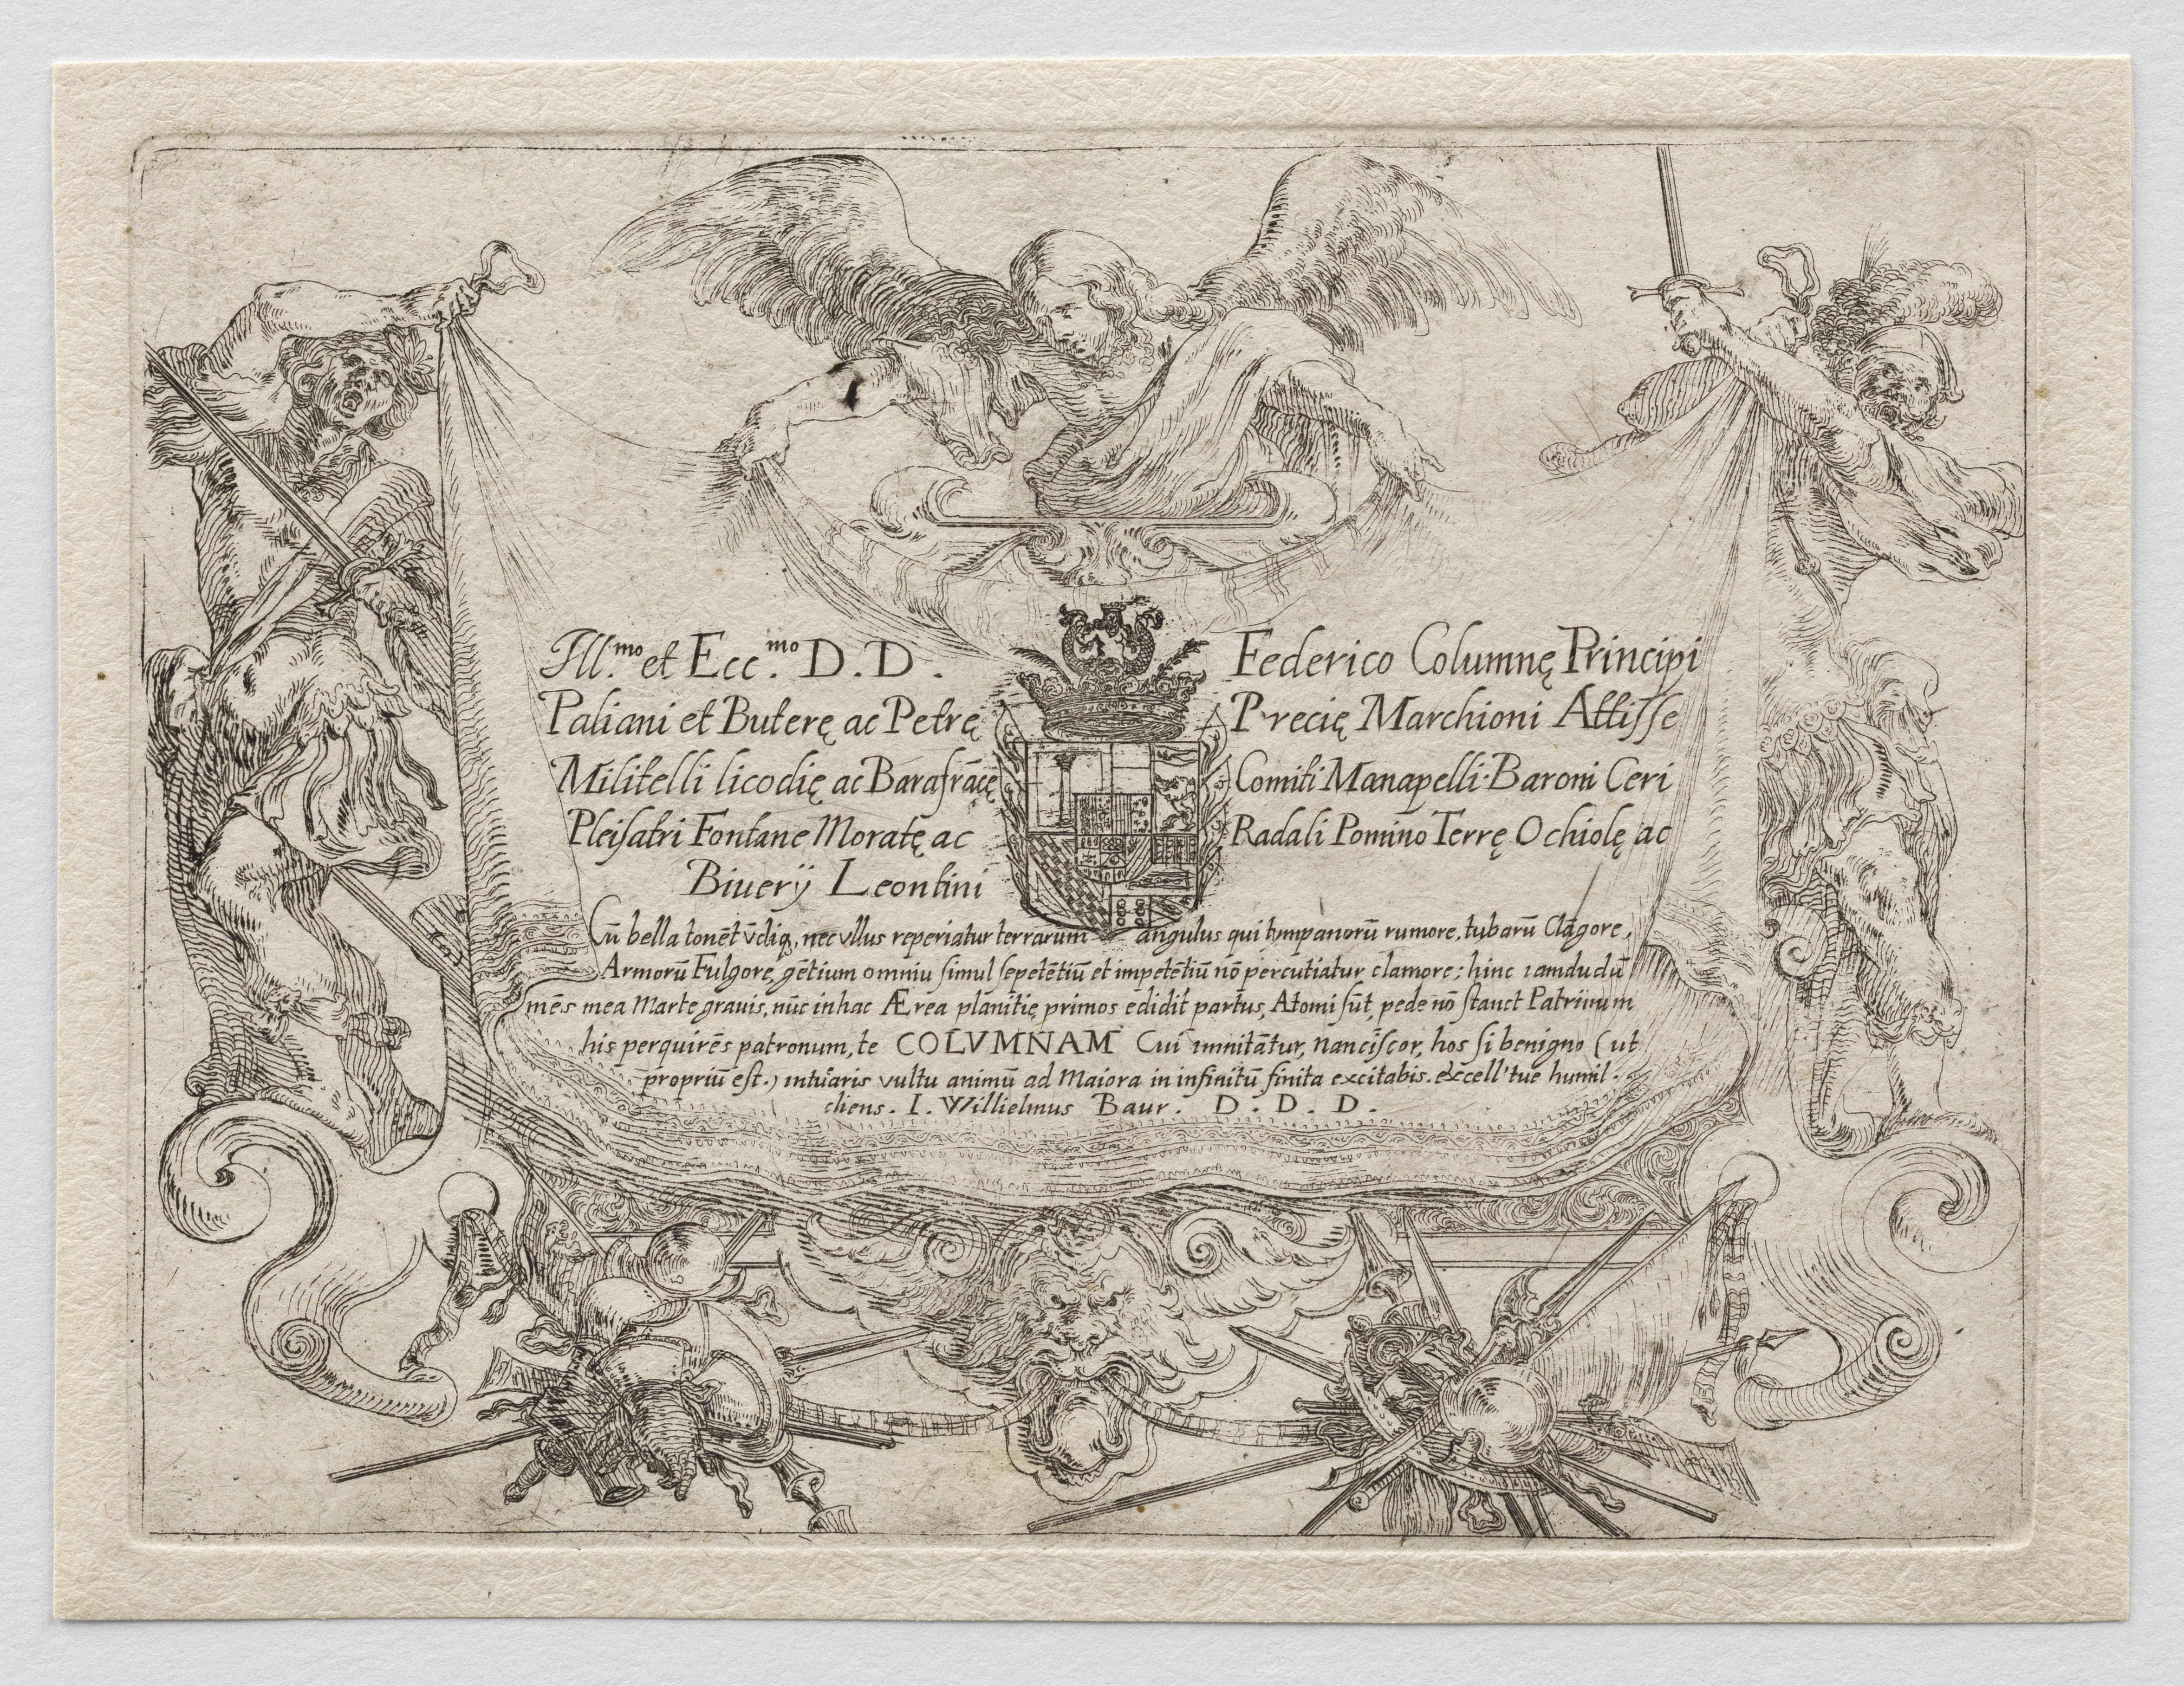 Ill.mo et Ecc.mo D. D. Federico Columnę Principi
Paliani et Buterę ac Petrę Precię Marchioni Attisse
Militelli licodię ac Barafrācę Comiti Manapelli·Baroni Ceri
Pleisatri Fontane Moratę ac Radali Pomino Terrę Ochiolę ac
Biuerÿ Leontini
Cū bella tonēt ūdiq, nec vllus reperiatur terrarum angulus qui tympanorū rumore, tubarū Clāgore,
Armorū Fulgore, gētium omniu simul sepetētiū et impetētiū nō percutiatur clamore; hinc iamdudū
mēs mea Marte grauis, nūc in hac Ærea planitie primos edidit partus, Atomi sūt, pede nō stanct Patriinum
his perquirēs patronum, te COLVMNAM Cui innitātur, nanciscor, hos si benigno (ut
propriū est.) intuaris vultu animū ad Maiora in infinitū finita excitabis. excell' tue humil.
cliens. I. Willielmus Baur. D. D. D.